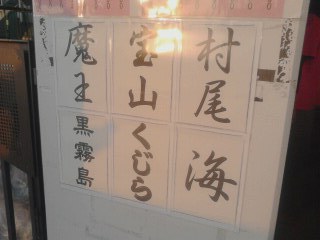 村尾
海
宝山
くじら
魔王
黒霧島